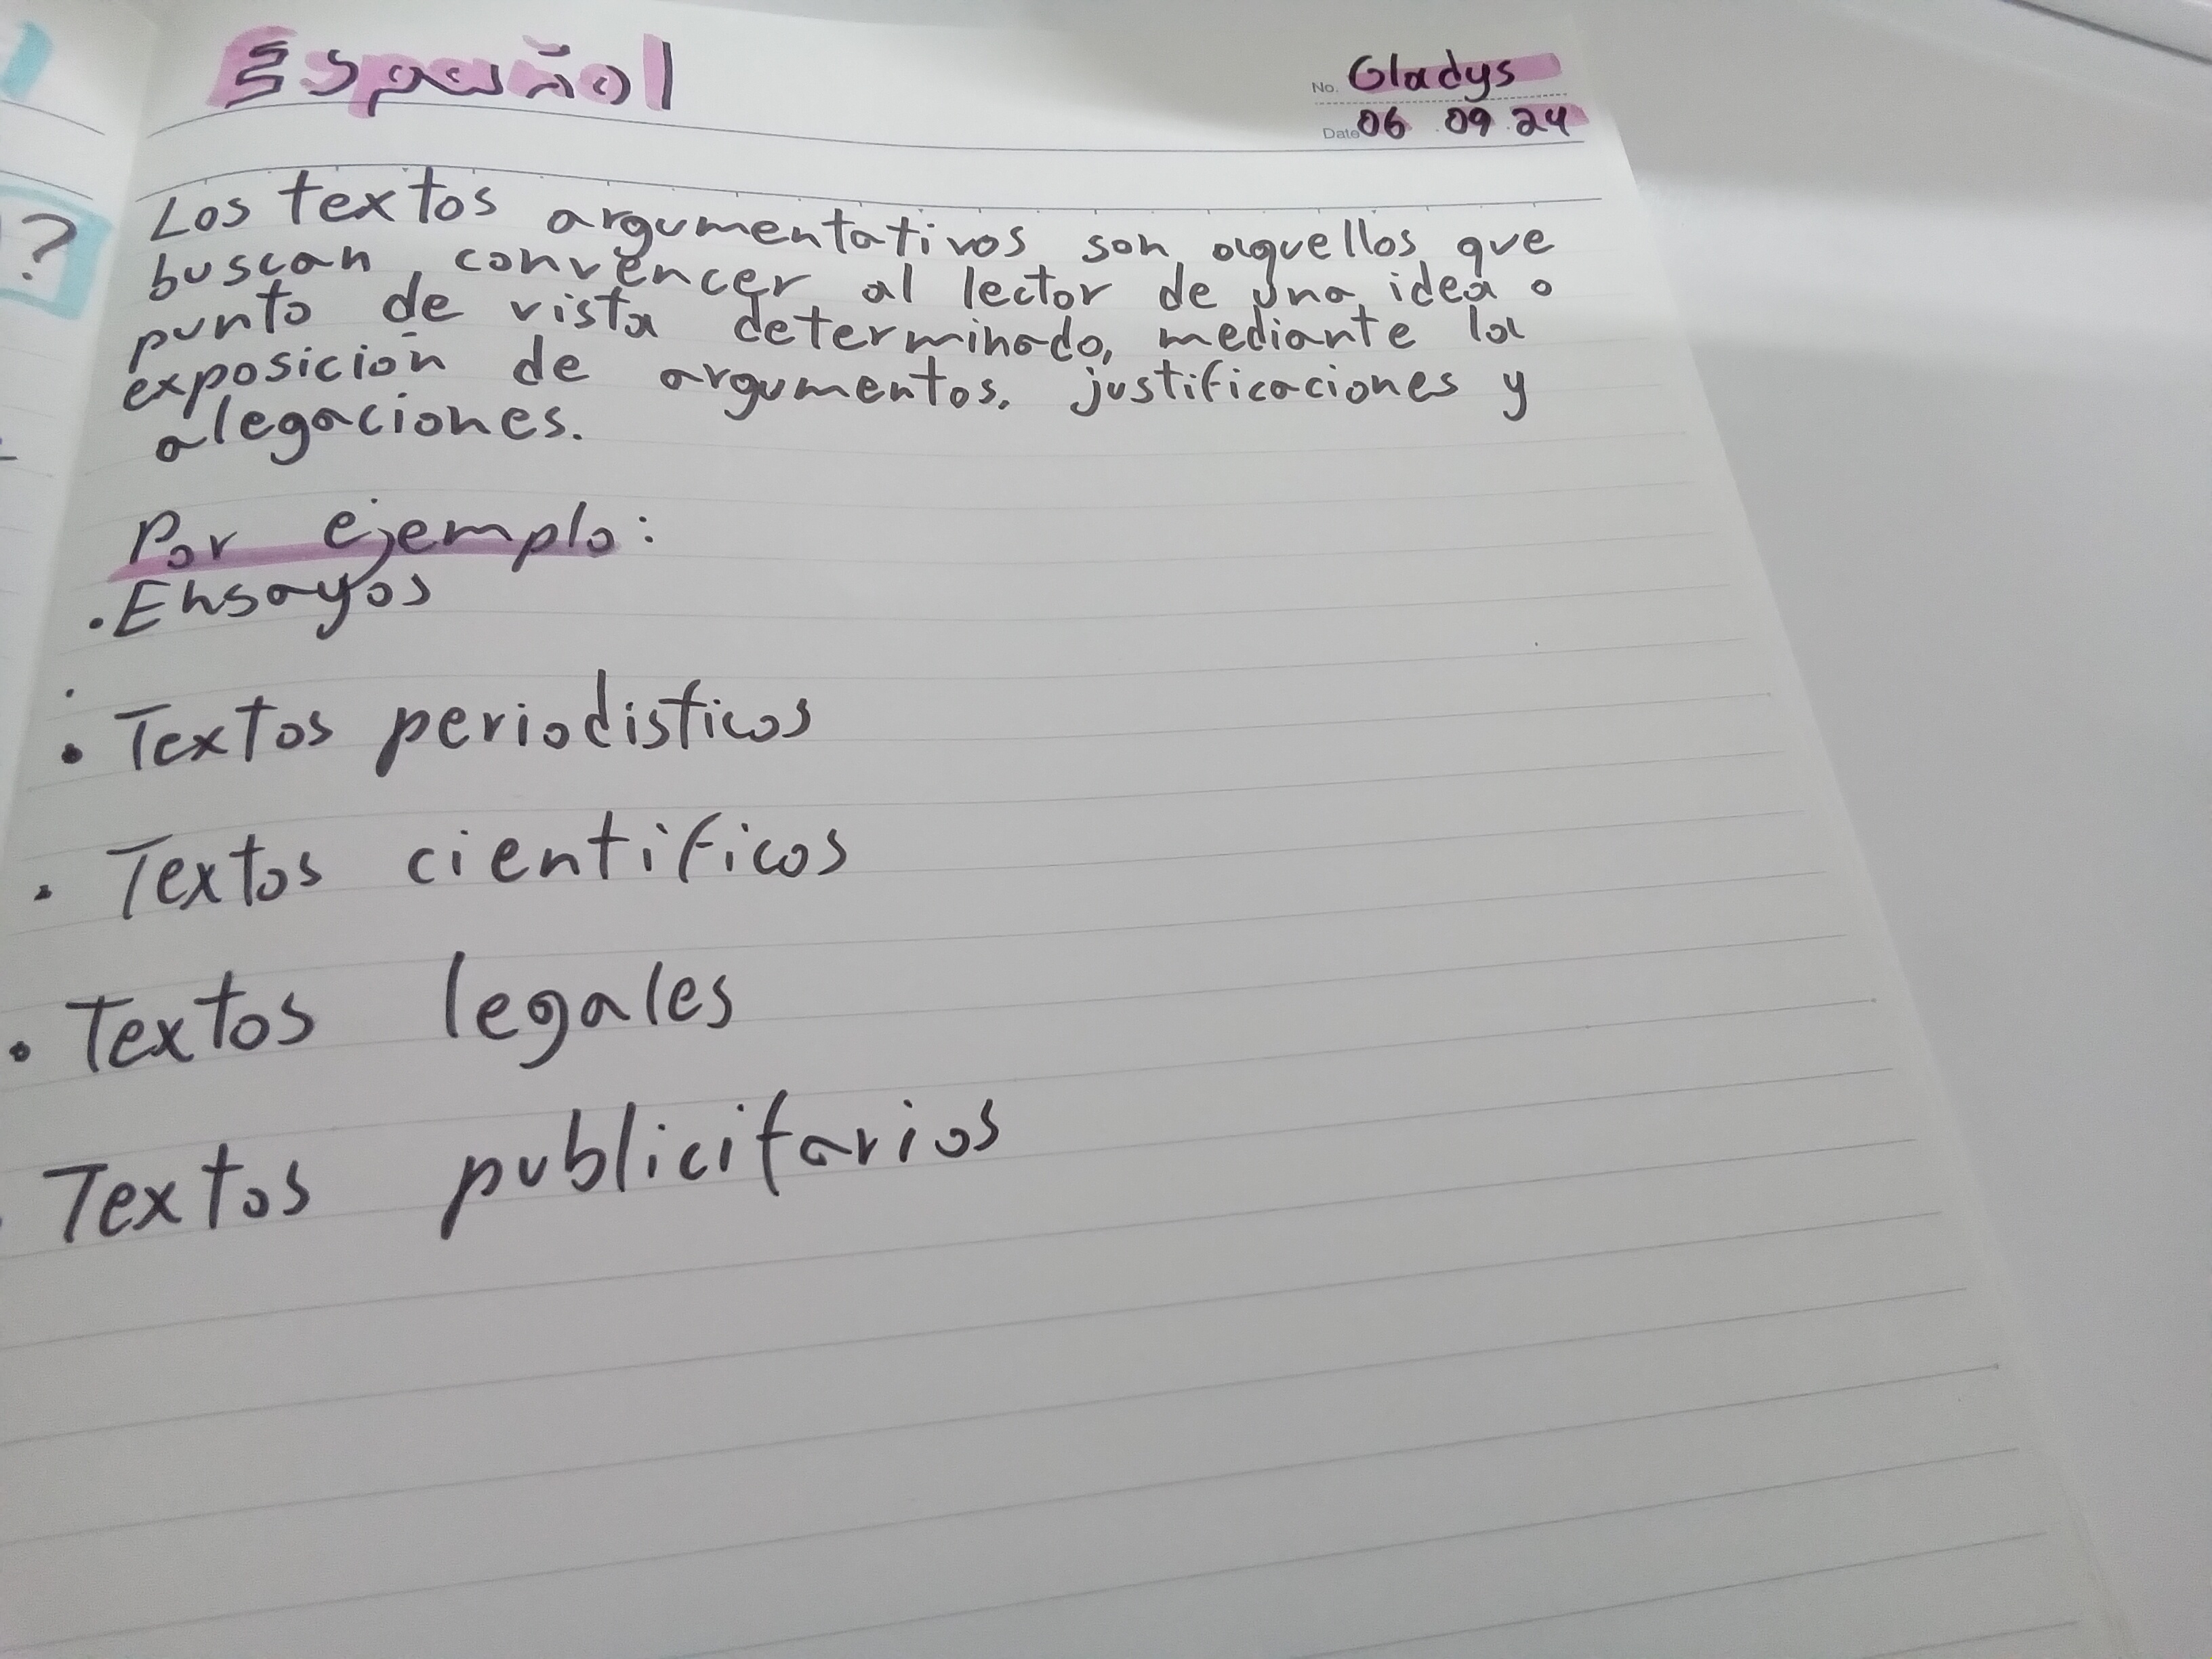 Español
No. Gladys
Date 06 09 24
?
Los textos argumentativos son aquellos que
buscan convencer al lector de una idea o
punto de vista determinado, mediante la
exposición de argumentos, justificaciones y
alegaciones.
Por ejemplo:
• Ensayos
• Textos periodisticos
• Textos cientificos
• Textos legales
• Textos publicitarios